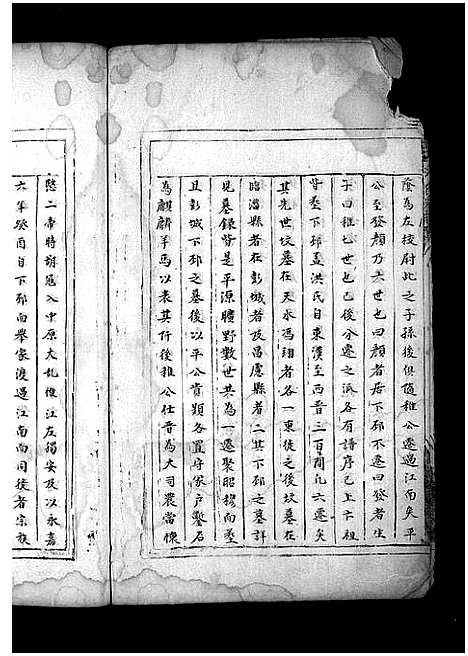 蔭為左校尉此之子孫後俱隨稚公遷過江南矣平
公至發顏乃六世也曰顏者居下邳不遷曰發者生
子曰稚七世也已後分遷之派各有譜序已上六祖
皆墓下邳盖洪氏自東漢至西晋三百間凡六遷矣
其先世坟墓在天水馮翊者各一東徙之後坟墓在
臨淄縣者在彭城者及昌慮縣者二其下邳之墓詳
見墓錄皆是平源曠野數世共為一遷聚昭穆而塟
且彭城下邳之墓後以平公貴顯各置守冢户鑿石
為麒麟羊馬以表其阡後稚公仕晋為大司農當懷
愍二帝時胡寇入中原大乱惟江左獨安及以永嘉
六年癸酉自下邳而舉家渡過江南而同徙者宗族